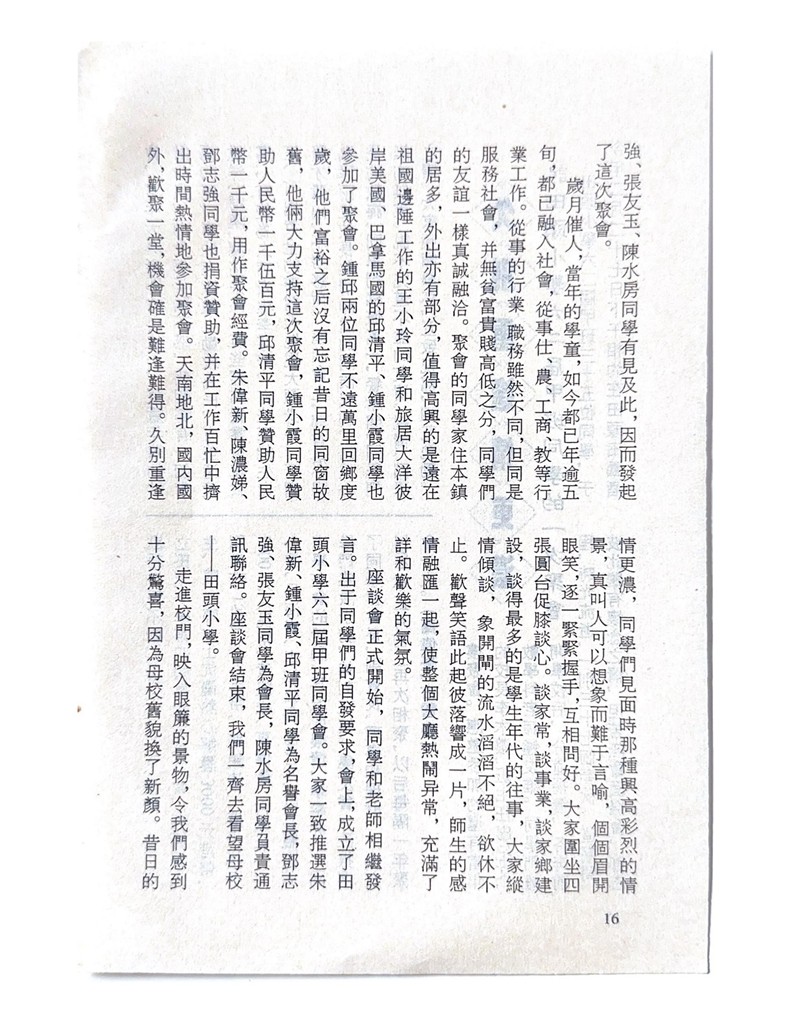 強、張友玉、陳水房同學有見及此，因而發起
了這次聚會。
歲月催人，當年的學童，如今都已年逾五
旬，都已融入社會，從事仕、農、工商、教等行
業工作。從事的行業　職務雖然不同，但同是
服務社會，并無貧富貴賤高低之分，同學們
的友誼一樣真誠融洽。聚會的同學家住本鎮
的居多，外出亦有部分，值得高興的是遠在
祖國邊陲工作的王小玲同學和旅居大洋彼
岸美國、巴拿馬國的邱清平、鍾小霞同學也
參加了聚會。鍾邱兩位同學不遠萬里回鄉度
歲，他們富裕之后沒有忘記昔日的同窗故
舊，他倆大力支持這次聚會，鍾小霞同學贊
助人民幣一千伍百元，邱清平同學贊助人民
幣一千元，用作聚會經費。朱偉新、陳濃娣、
鄧志強同學也捐資贊助，并在工作百忙中擠
出時間熱情地參加聚會。天南地北，國内國
外，歡聚一堂，機會確是難逢難得。久別重逢
情更濃，同學們見面時那種興高彩烈的情
景，真叫人可以想象而難于言喻，個個眉開
眼笑，逐一緊緊握手，互相問好。大家圍坐四
張圓台促膝談心。談家常，談事業，談家鄉建
設，談得最多的是學生年代的往事，大家縱
情傾談，象開閘的流水滔滔不絕，欲休不
止。歡聲笑語此起彼落響成一片，師生的感
情融匯一起，使整個大廳熱鬧异常，充滿了
詳和歡樂的氣氛。
座談會正式開始，同學和老師相繼發
言。出于同學們的自發要求，會上，成立了田
頭小學六二屆甲班同學會。大家一致推選朱
偉新、鍾小霞、邱清平同學為名譽會長，鄧志
強、張友玉同學為會長，陳水房同學員責通
訊聯絡。座談會結束，我們一齊去看望母校
——田頭小學。
走進校門，映入眼簾的景物，令我們感到
十分驚喜，因為母校舊貌換了新顏。昔日的
16